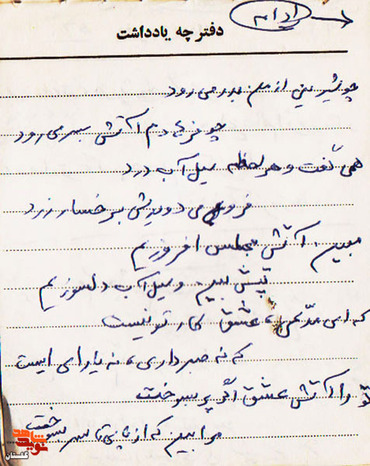 ادامه
دفترچه یادداشت
چو شیرینی از من بدر می رود
چو فرهادم آتش بسر می رود
همی گفت و هر لحظه سیل آب درد
فرو می دویدش برخسار زرد
مبین آتش مجلس افروزیم
تپش بین و سیل آب دلسوزیم
که ای مدعی، عشق کار تو نیست
که نه صبر داری، نه یارای ایست
تو را آتش عشق اگر پر بسوخت
مرا بین که از پای تا سر بسوخت
نوید
گلستان